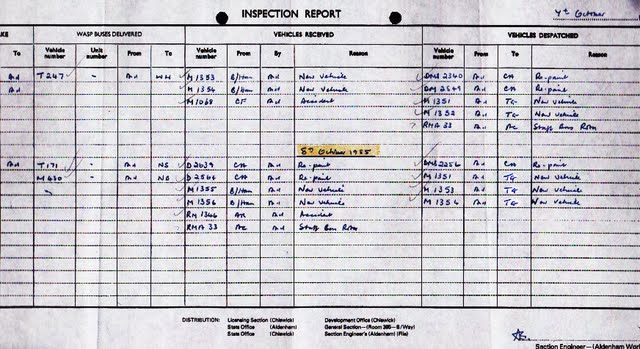 INSPECTION REPORT 4th October
AKE WASP BUSES DELIVERED VEHICLES RECEIVED VEHICLES DESPATCHED
To Vehicle number Unit number From To Vehicle number From By Reason Vehicle number From To Reason
Ad T 247 - Ad WH M 1353 B/Ham Ad New Vehicle DMS 2340 Ad CH Re-paint
Ad M 1354 B/Ham Ad New Vehicle DM 2549 Ad CH Re-paint
M 1068 CF Ad Accident M 1351 Ad TG New Vehicle
M 1352 Ad TG New Vehicle
? RMA 33 Ad AC Staff Bus Rota
8th October 1985
Ad T 171 - Ad NS D 2039 CH Ad Re-paint DMS 2256 Ad CH Re-paint
M 430 - Ad NS D 2564 CH Ad Re-paint M 1351 Ad TG New Vehicle
M 1355 B/Ham Ad New Vehicle M 1353 Ad TG New Vehicle
M 1356 B/Ham Ad New Vehicle M 1354 Ad TG New Vehicle
RM 1346 AR Ad Accident
RMA 33 AC Ad Staff Bus Rota
DISTRIBUTION: Licensing Section (Chiswick) Development Office (Chiswick)
State Office (Aldenham) General Section—(Room 395—B/Way)
State Office (Chiswick) Section Engineer's (Aldenham) (File)
Section Engineer—(Aldenham Wor